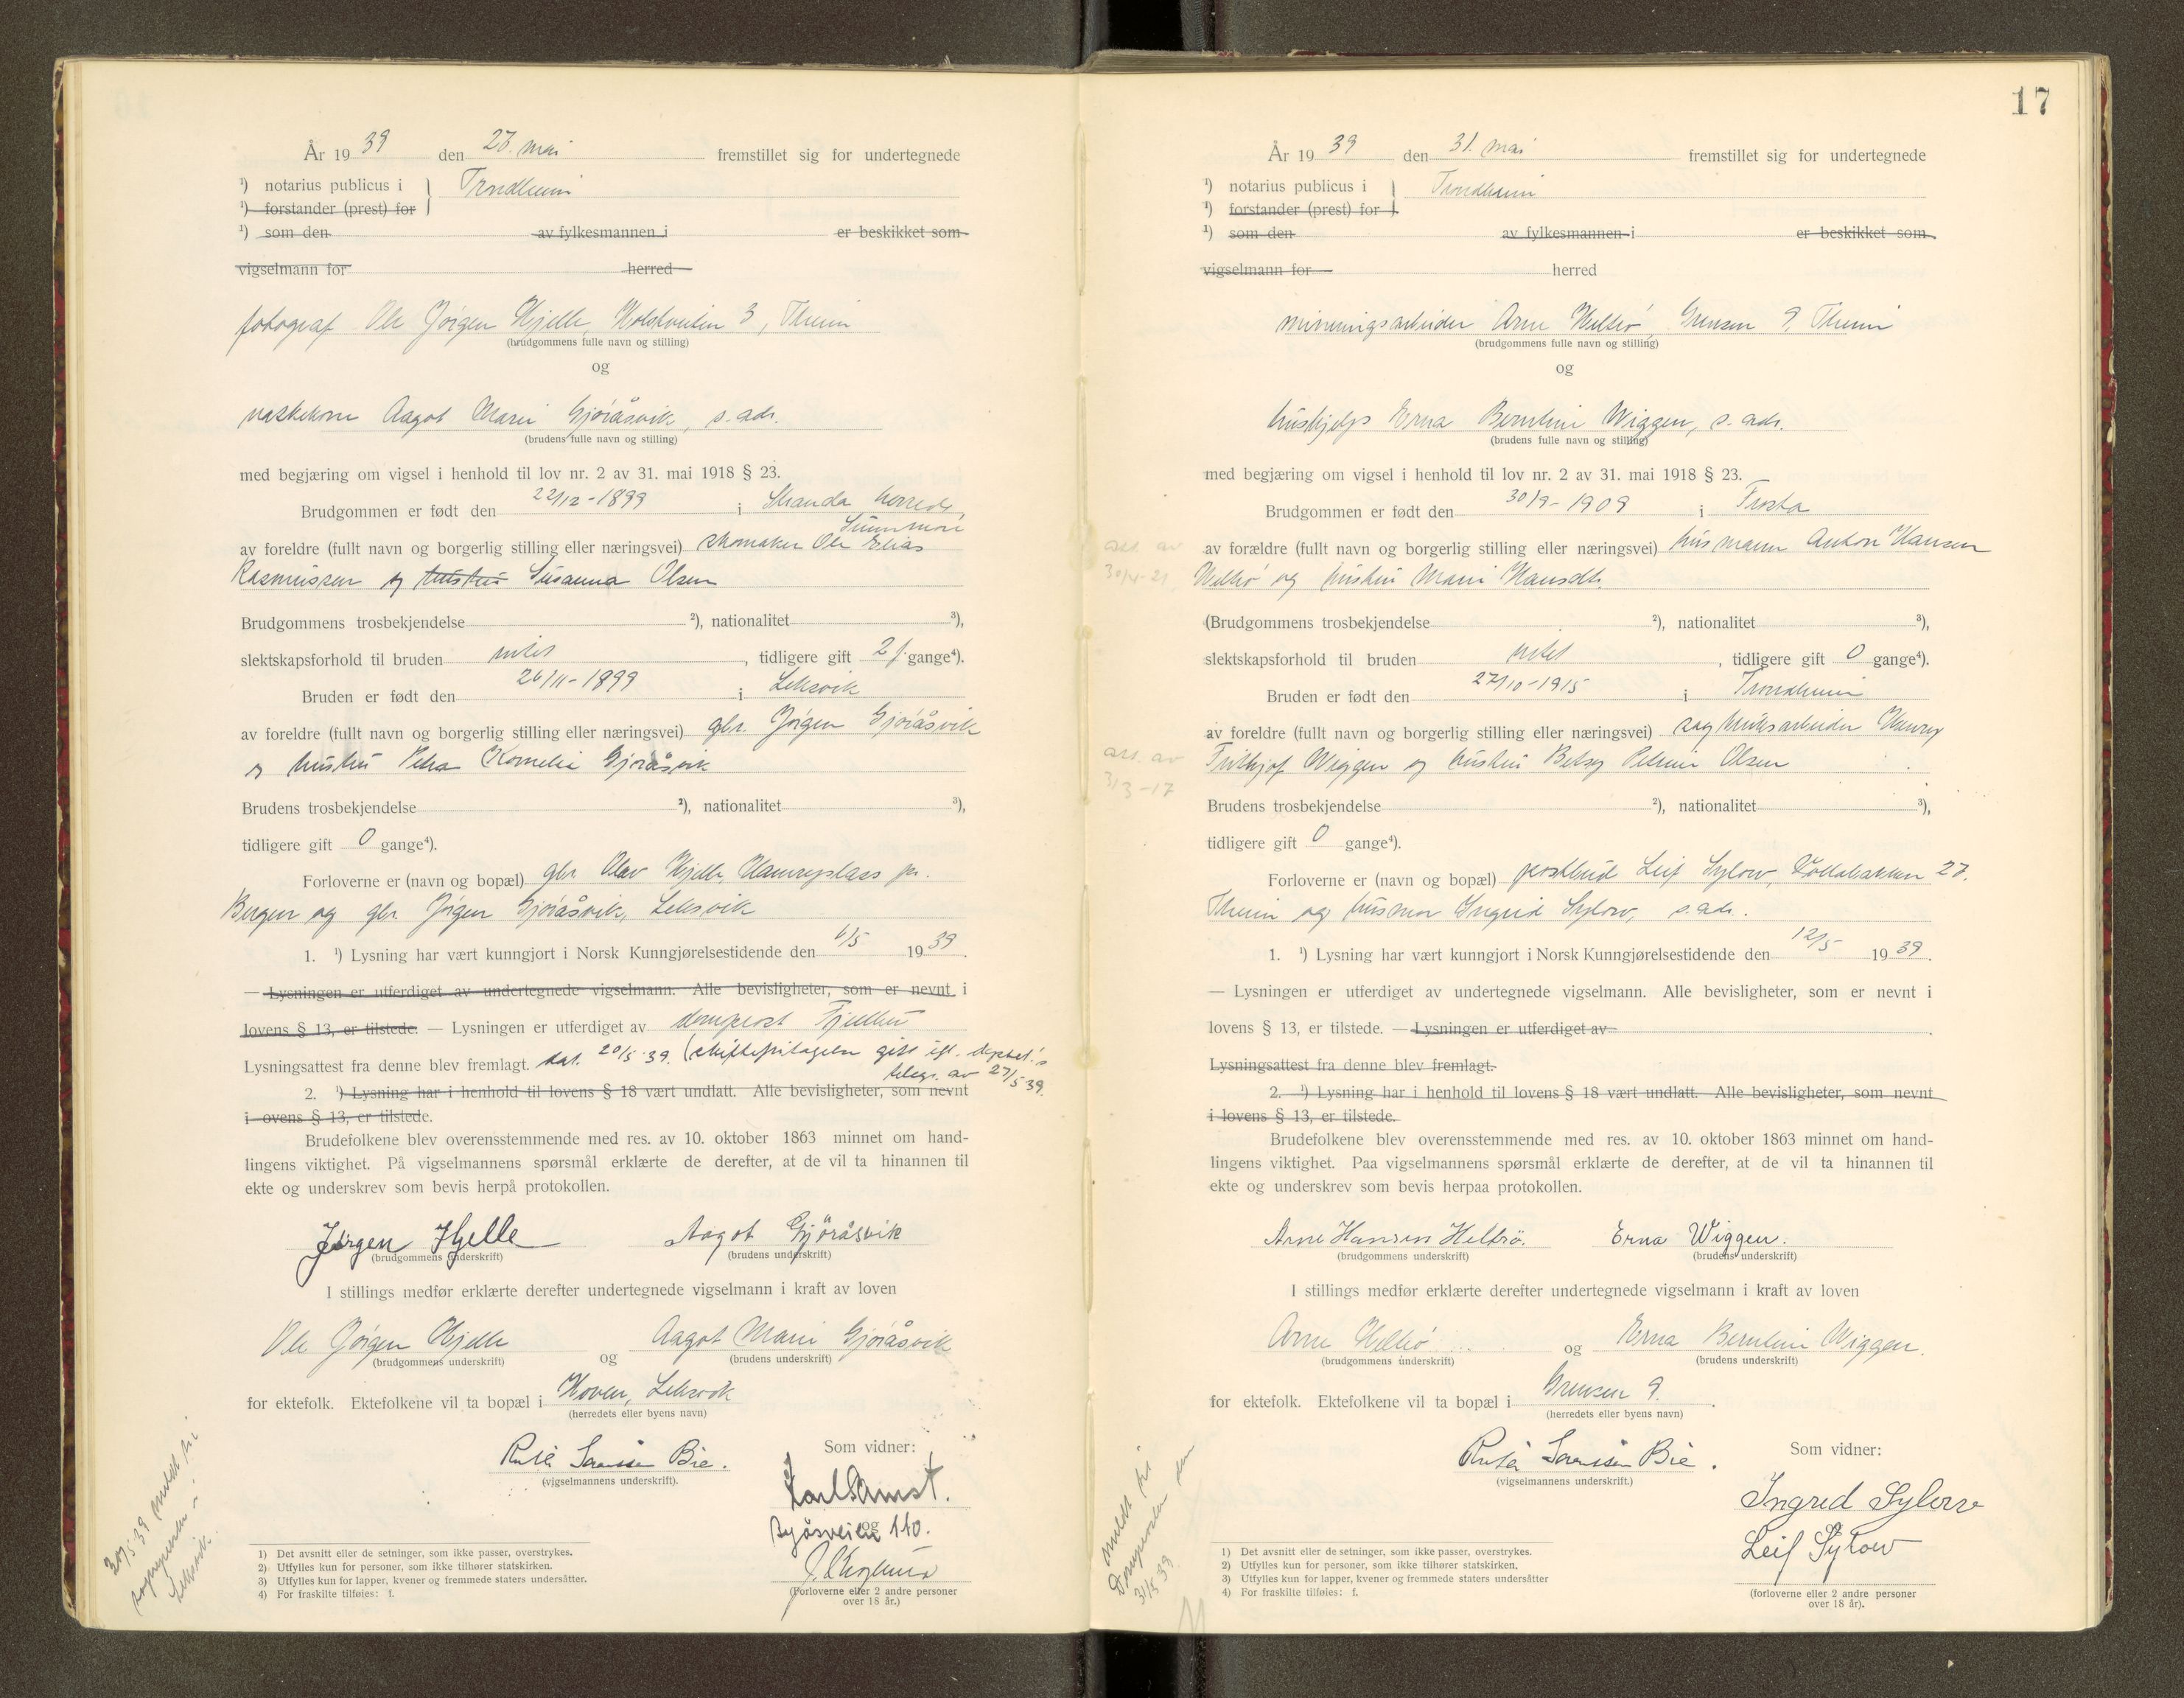 År 19 39 den 27. mai fremstillet sig for undertegnede
¹) notarius publicus i } Trondheim
¹) forstander (prest) for
¹) som den av fylkesmannen i er beskikket som
vigselmann for herred
fotograf Ole Jörgen Hjelle, 3, Theim
(brudgommens fulle navn og stilling)
og
vaskekone Aagot Marie Gjöråsvik, s. adr.
(brudens fulle navn og stilling)
med begjæring om vigsel i henhold til lov nr. 2 av 31. mai 1918 § 23.
Brudgommen er født den 22/12-1899 i Stranda herred,
Sunnmöre
av foreldre (fullt navn og borgerlig stilling eller næringsvei) skomaker Ole Elias
Rasmussen og hustru Susanna Olsen
Brudgommens trosbekjendelse ²), nationalitet ³),
slektskapsforhold til bruden intet, tidligere gift 2 f. gange⁴).
Bruden er født den 26/11-1899 i Leksvik
av foreldre (fullt navn og borgerlig stilling eller næringsvei) gbr. Jörgen Gjöråsvik
og hustru Petra Kornelia Gjöråsvik
Brudens trosbekjendelse ²), nationalitet ³),
tidligere gift 0 gange⁴).
Forloverne er (navn og bopæl) gbr. Olav Hjelle, pr.
Bergen og gbr. Jörgen Gjöråsvik, Leksvik
1. ¹) Lysning har vært kunngjort i Norsk Kunngjørelsestidende den 6/5 19 39.
— Lysningen er utferdiget av undertegnede vigselmann. Alle bevisligheter, som er nevnt i
lovens § 13, er tilstede. — Lysningen er utferdiget av domprost Fjellbu
Lysningsattest fra denne blev fremlagt. dat. 20/5-39. (skifteforlagelse gitt ifl. deptet.'s
telegr. av 27/5 39.
2. ¹) Lysning har i henhold til lovens § 18 vært undlatt. Alle bevisligheter, som nevnt
i ovens § 13, er tilstede.
Brudefolkene blev overensstemmende med res. av 10. oktober 1863 minnet om hand-
lingens viktighet. På vigselmannens spørsmål erklærte de derefter, at de vil ta hinannen til
ekte og underskrev som bevis herpå protokollen.
Jørgen Hjelle Aagot Gjöråsvik
(brudgommens underskrift) (brudens underskrift)
I stillings medfør erklærte derefter undertegnede vigselmann i kraft av loven
Ole Jörgen Hjelle og Aagot Marie Gjöråsvik
(brudgommens underskrift) (brudens underskrift)
for ektefolk. Ektefolkene vil ta bopæl i Hoven, Leksvik
(herredets eller byens navn)
Som vidner:
Bie.
(vigselmannens underskrift).
Karl
og
Byåsveien 110.
(Forloverne eller 2 andre personer
over 18 år.)
30/5 39 meldt til
sognepresten i
Leksvik.
1) Det avsnitt eller de setninger, som ikke passer, overstrykes.
2) Utfylles kun for personer, som ikke tilhører statskirken.
3) Utfylles kun for lapper, kvener og fremmede staters undersåtter.
4) For fraskilte tilføies: f.
17
År 19 39 den 31. mai fremstillet sig for undertegnede
¹) notarius publicus i } Trondheim
¹) forstander (prest) for
¹) som den av fylkesmannen i er beskikket som
vigselmann for herred
mineringsarbeider Arne Heltrö, Grensen 9, Theim
(brudgommens fulle navn og stilling)
og
hushjelp Erna Berntine Wiggen, s. adr.
(brudens fulle navn og stilling)
med begjæring om vigsel i henhold til lov nr. 2 av 31. mai 1918 § 23.
Brudgommen er født den 30/9-1909 i Frosta
av forældre (fullt navn og borgerlig stilling eller næringsvei) husmann Anton Hansen
Heltrö og hustru Marie Hansdtr.
att. av
30/4-21
(Brudgommens trosbekjendelse ²), nationalitet ³),
slektskapsforhold til bruden intet, tidligere gift 0 gange⁴).
Bruden er født den 27/10-1915 i Trondheim
av foreldre (fullt navn og borgerlig stilling eller næringsvei) sagbruksarbeider Henry
Frithjof Wiggen og hustru Betsy Petrine Olsen
att. av
3/3-17
Brudens trosbekjendelse ²), nationalitet ³),
tidligere gift 0 gange⁴).
Forloverne er (navn og bopæl) postbud Leif Sylow, 27.
Theim og husmor Ingrid Sylow, s. adr.
1. ¹) Lysning har vært kunngjort i Norsk Kunngjørelsestidende den 12/5 19 39.
— Lysningen er utferdiget av undertegnede vigselmann. Alle bevisligheter, som er nevnt i
lovens § 13, er tilstede. — Lysningen er utferdiget av
Lysningsattest fra denne blev fremlagt.
2. ¹) Lysning har i henhold til lovens § 18 vært undlatt. Alle bevisligheter, som nevnt
i lovens § 13, er tilstede.
Brudefolkene blev overensstemmende med res. av 10. oktober 1863 minnet om hand-
lingens viktighet. Paa vigselmannens spørsmål erklærte de derefter, at de vil ta hinannen til
ekte og underskrev som bevis herpaa protokollen.
Arne Hansen Heltrö. Erna Wiggen.
(brudgommens underskrift) (brudens underskrift)
I stillings medfør erklærte derefter undertegnede vigselmann i kraft av loven
Arne Heltrö og Erna Berntine Wiggen.
(brudgommens underskrift) (brudens underskrift)
for ektefolk. Ektefolkene vil ta bopæl i Grensen 9.
(herredets eller byens navn)
Som vidner:
Bie.
(vigselmannens underskrift.)
Ingrid Sylow
Leif Sylow
(forloverne eller 2 andre personer
over 18 år).
meldt til
Domprosten den
31/5 39
1) Det avsnitt eller de setninger, som ikke passer, overstrykes.
2) Utfylles kun for personer, som ikke tilhører statskirken.
3) Utfylles kun for lapper, kvener og fremmede staters undersåtter
4) For fraskilte tilføies: f.